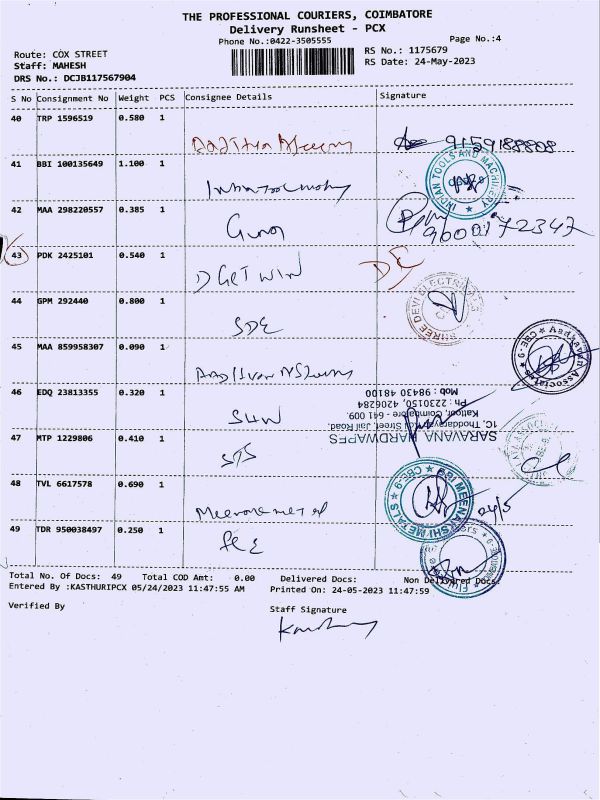 THE PROFESSIONAL COURIERS, COIMBATORE
Delivery Runsheet - PCX
Phone No.:0422-3505555
Page No.:4
Route: COX STREET
RS No.: 1175679
Staff: MAHESH
RS Date: 24-May-2023
DRS No.: DCJB117567904
S No Consignment No Weight PCS Consignee Details Signature
40 TRP 1596519 0.580 1
9159188808
41 BBI 100135649 1.100 1
INDIAN TOOLS AND MACHINERY
42 MAA 298220557 0.385 1
Guna
9600172347
43 PDK 2425101 0.540 1
D GET WIN
DE
44 GPM 292440 0.800 1
SDE
SHREE DEVI ELECTRICALS
45 MAA 859958307 0.090 1
CBE-9
46 EDQ 23813355 0.320 1
SHW
SARAVANA HARDWARES
1C, Thodarayan Kovil Street, Jail Road,
Kattoor, Coimbatore - 641 009.
Ph : 2230150, 4206284
Mob : 98430 48100
47 MTP 1229806 0.410 1
SPS
48 TVL 6617578 0.690 1
MEENAKSHI METALS
CBE-9
24/5
49 TDR 950038497 0.250 1
Total No. Of Docs: 49 Total COD Amt: 0.00 Delivered Docs: Non Delivered Docs:
Entered By :KASTHURIPCX 05/24/2023 11:47:55 AM Printed On: 24-05-2023 11:47:59
Verified By
Staff Signature